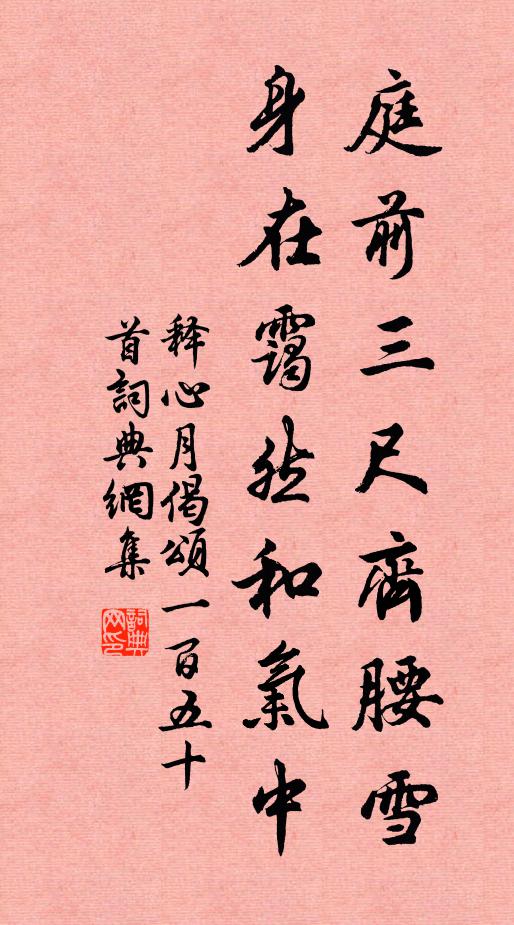 庭前三尺齊腰雪
身在靄然和氣中
释心月偈頌一百五十
首詞典網集
詞典
网印